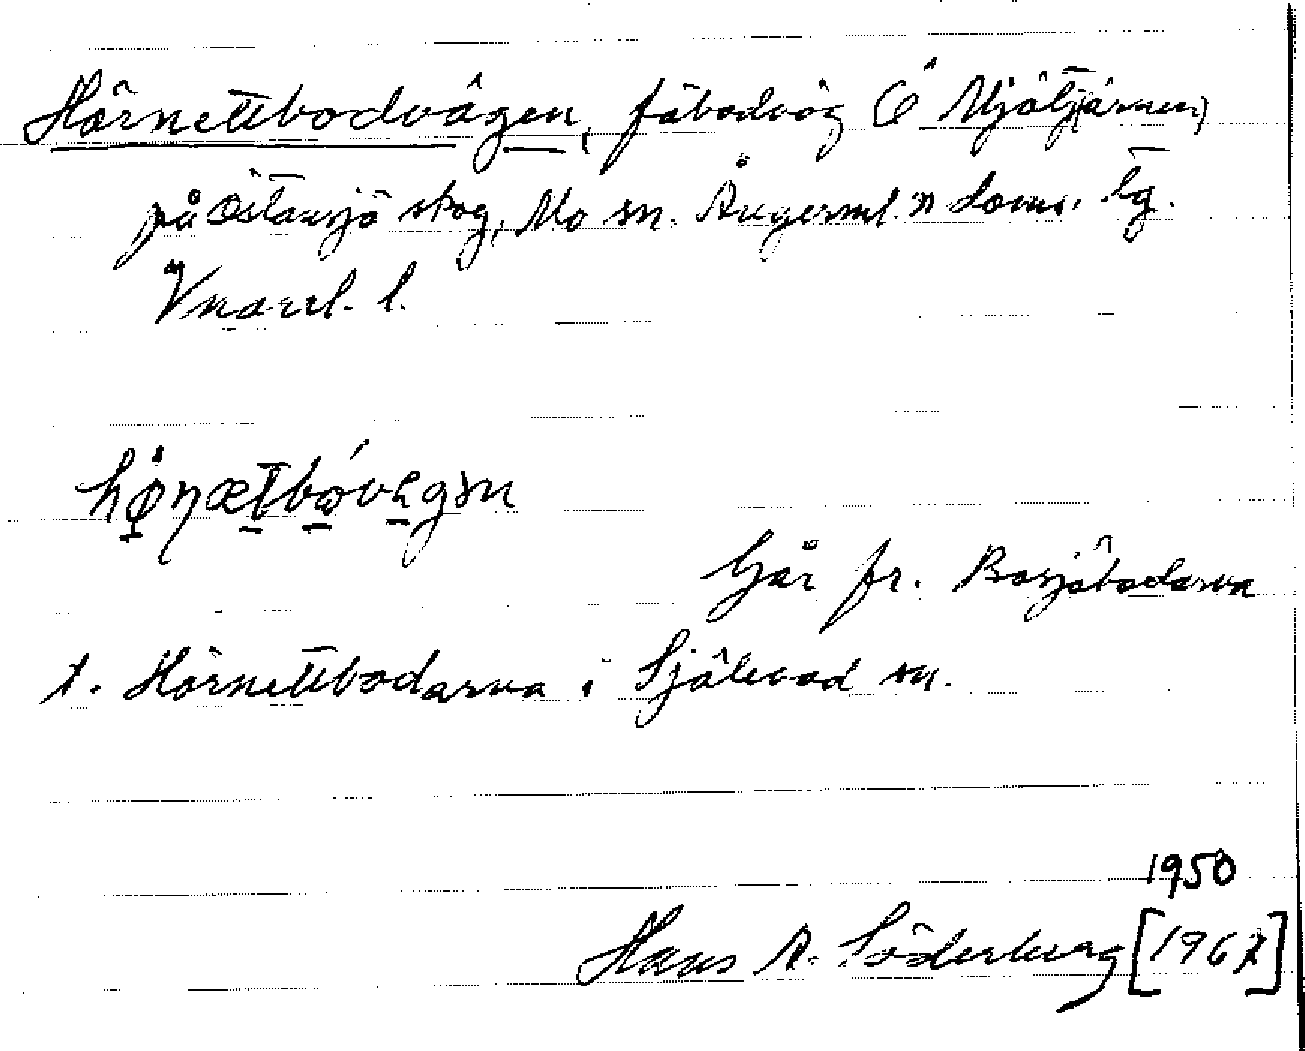 Hörnettbodvägen, fäbodväg Ö Mjöltjärnen
på Östansjö skog, Mo sn. Ångerml.
V narrl. l.
Går fr. Bosjöbodarna
t. Hörnettbodarna i Själevad sn.
1950
Hans A. Söderberg [1967]